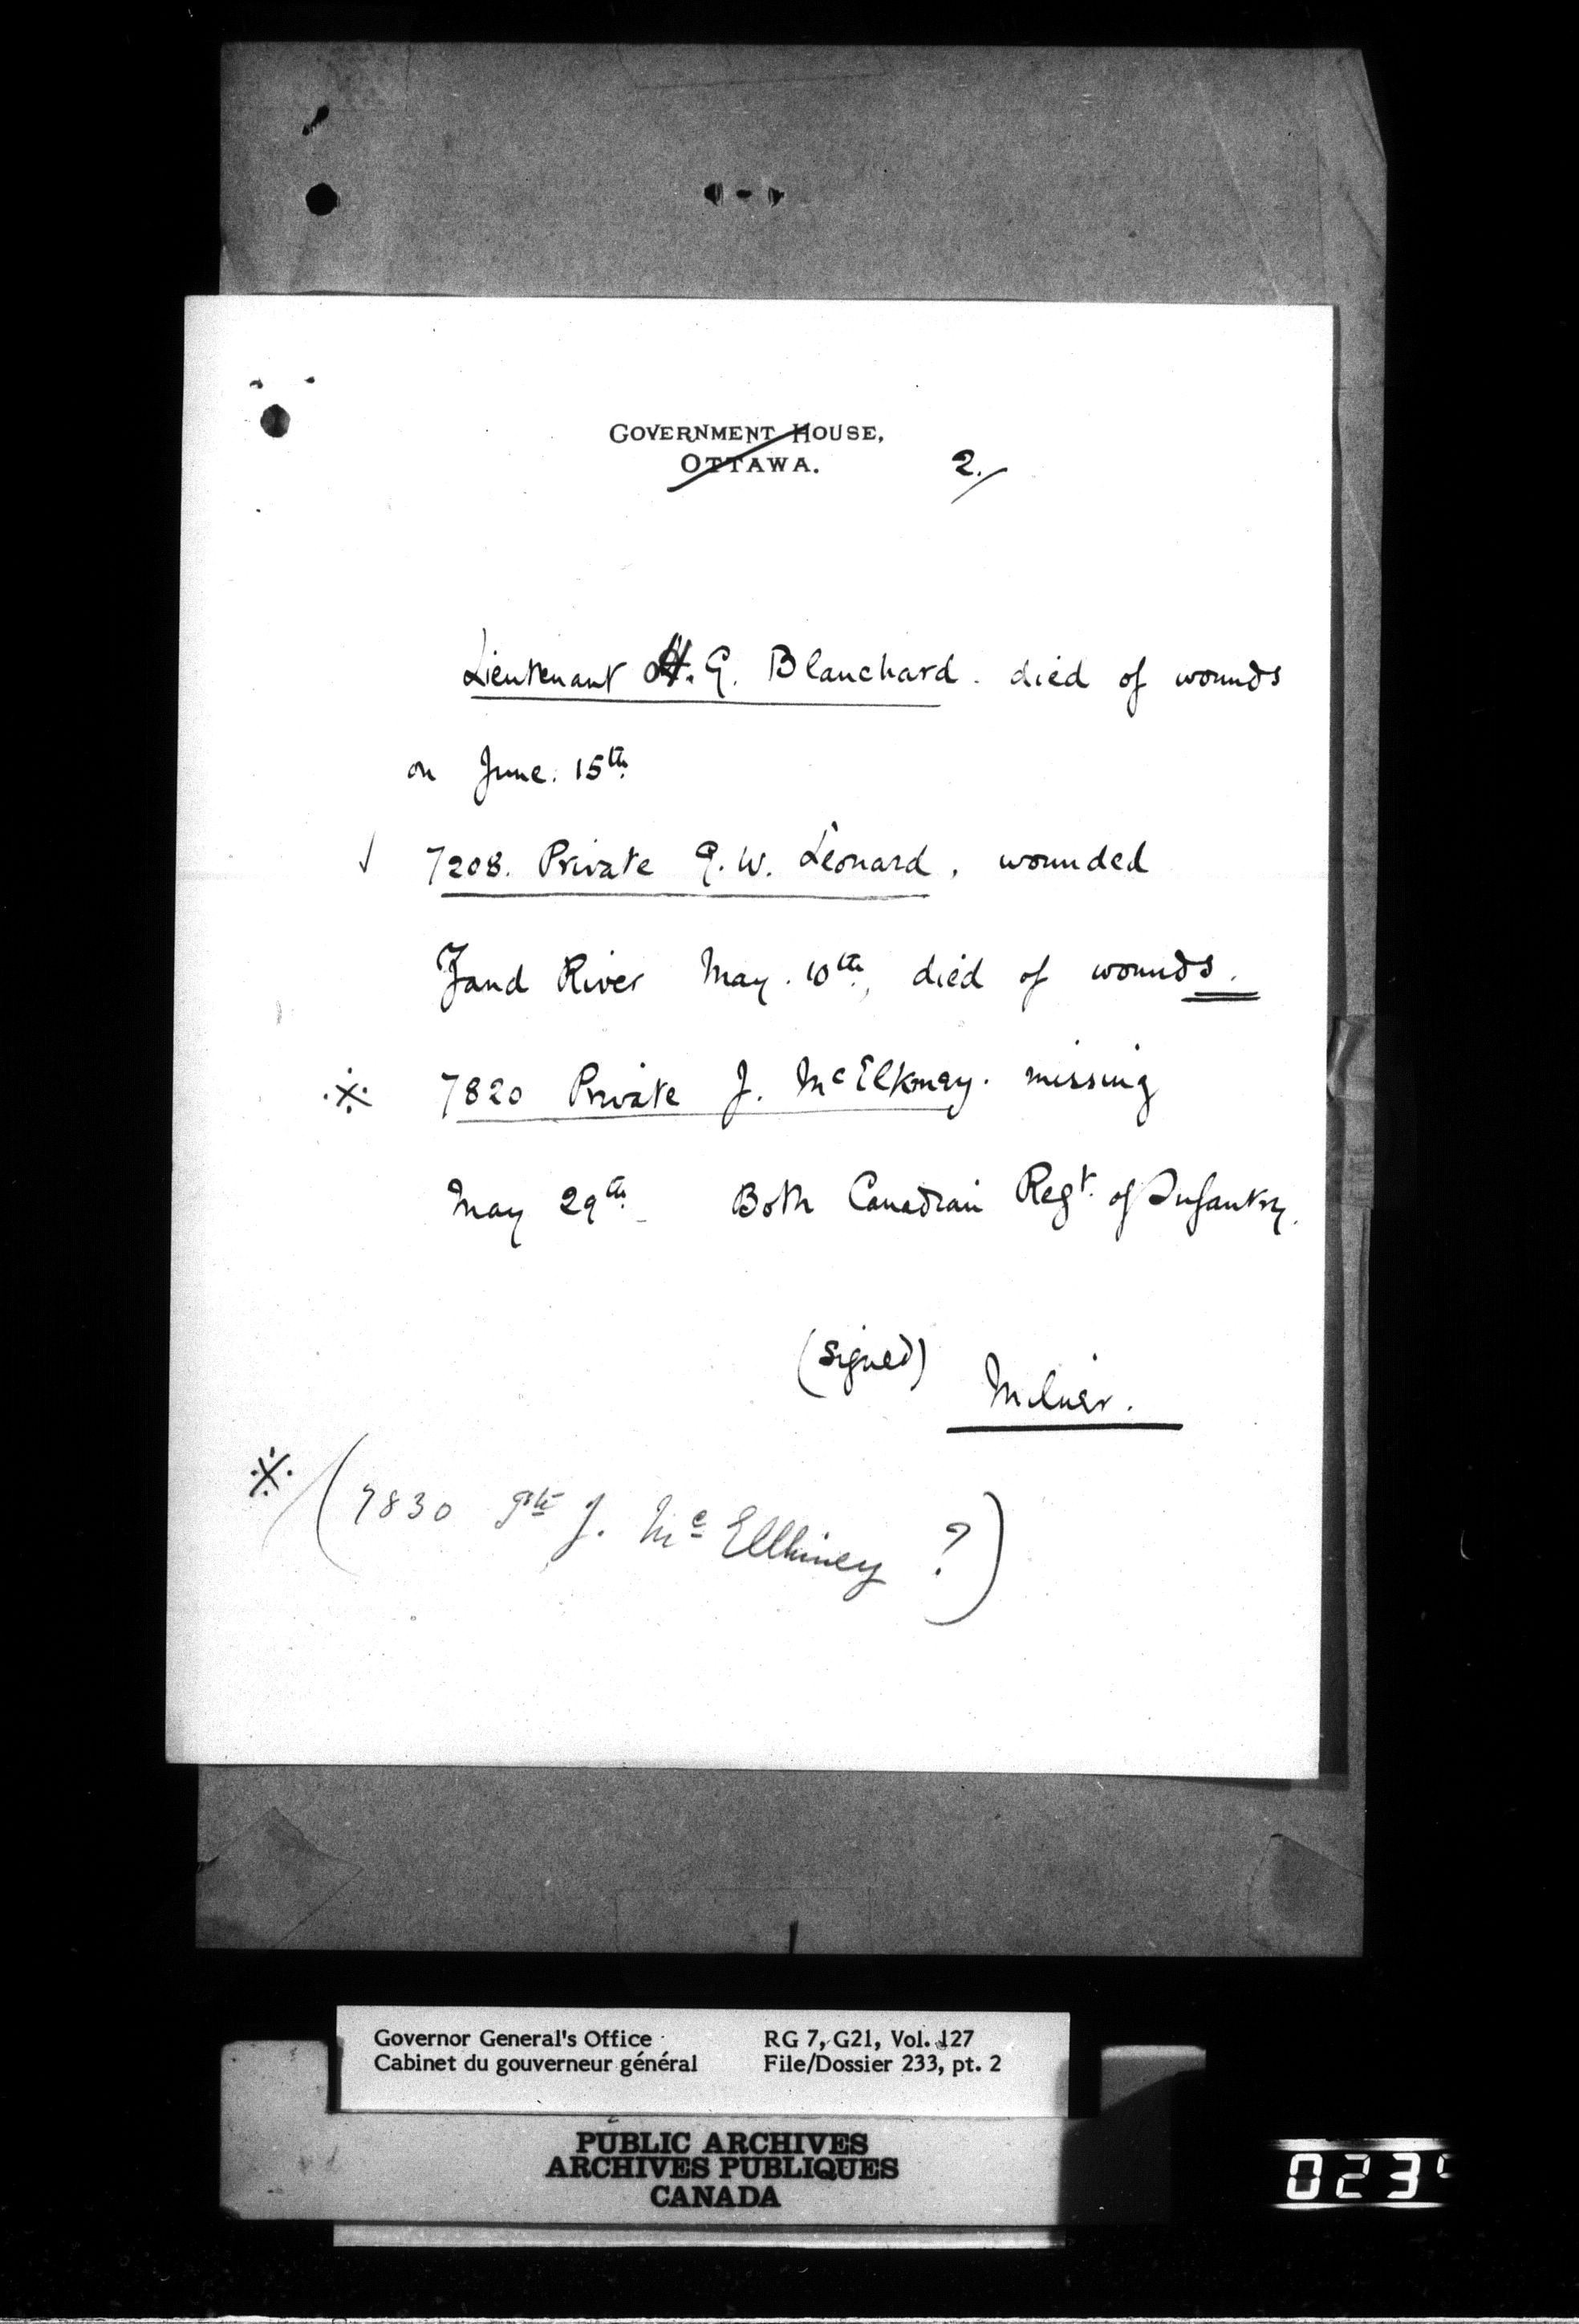 GOVERNMENT HOUSE,
OTTAWA.
2./
Lieutenant H. G. Blanchard. died of wounds
on June. 15th.
7208. Private G. W. Leonard, wounded
Zand River May. 10th, died of wounds.
※ 7820 Private J. McElkney. missing
May 29th. Both Canadian Regt. of Infantry.
(signed) Milner.
※ (7830 Pte J. Mc Elhiney ?)
Governor General's Office RG 7, G21, Vol. 127
Cabinet du gouverneur général File/Dossier 233, pt. 2
PUBLIC ARCHIVES
ARCHIVES PUBLIQUES
CANADA
023